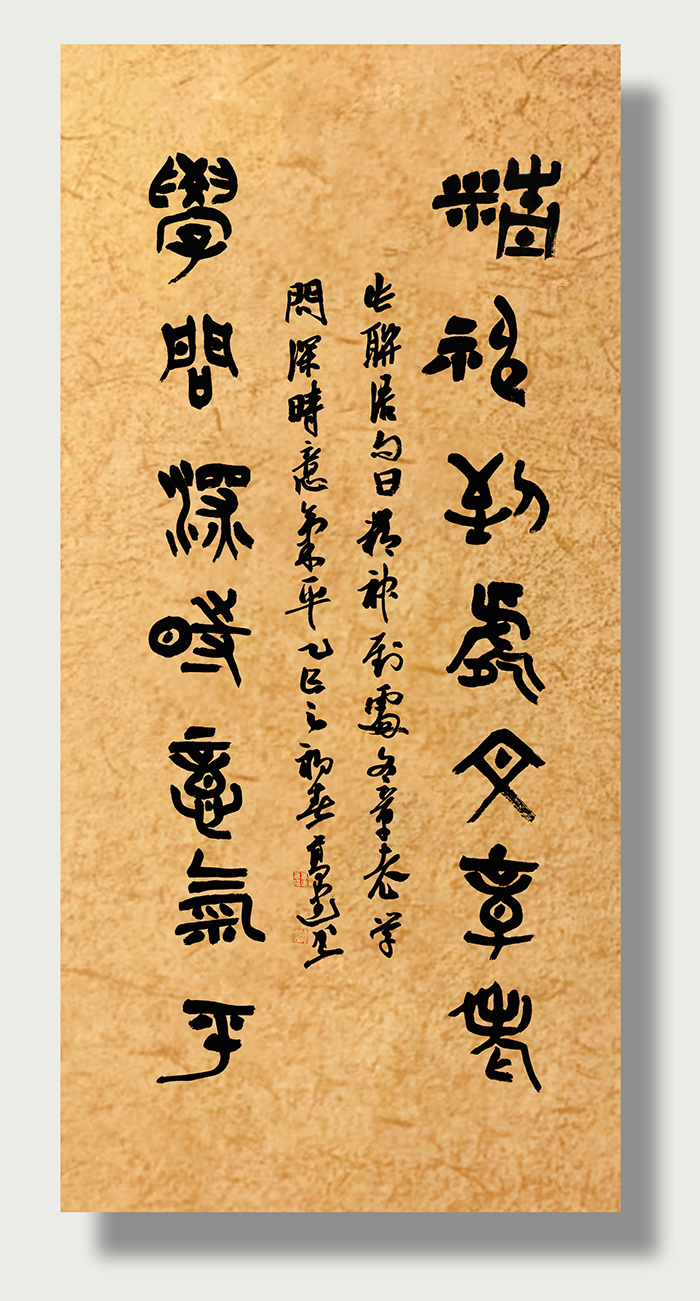 精神到處文章老
學問深時意氣平
此聯句曰精神到處文章老学
問深時意氣平乙巳之初春高书